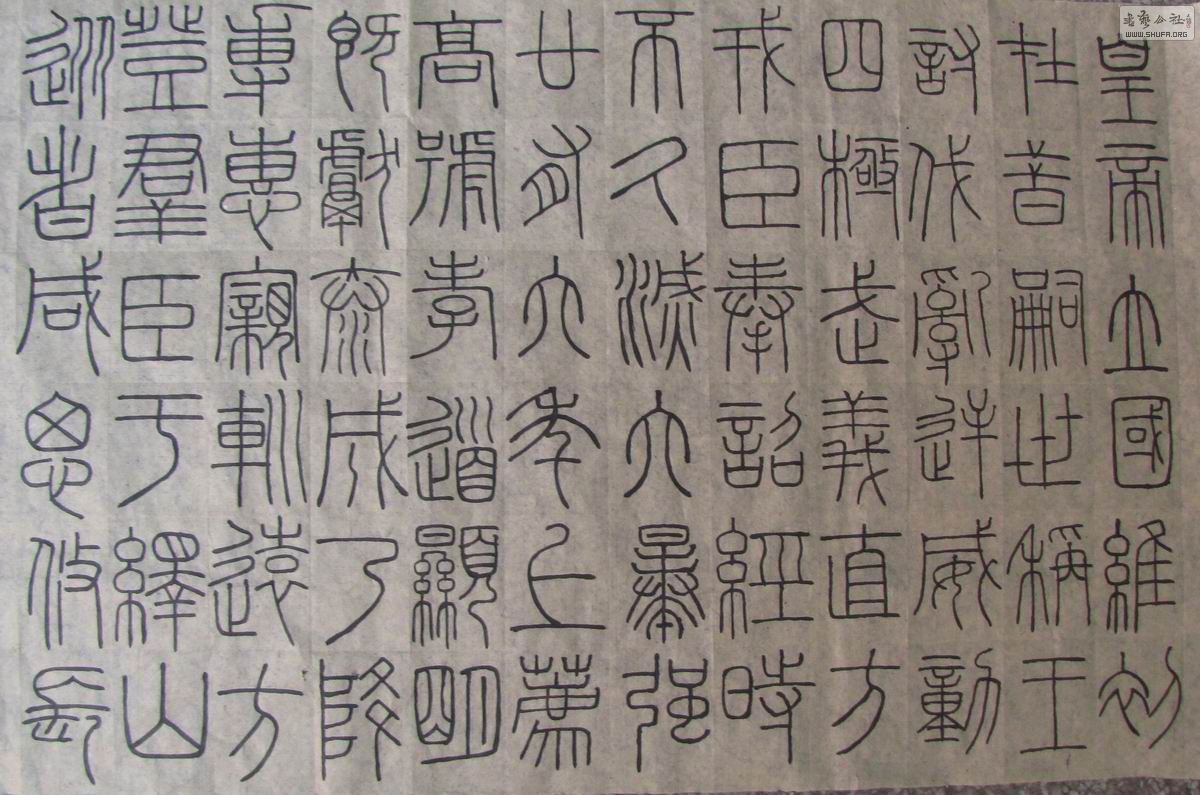 皇帝立國維初
在昔嗣世稱王
討伐亂逆威動
四極武義直方
戎臣奉詔經時
不久滅六暴強
廿有六年上薦
高號孝道顯明
既獻泰成乃降
專惠親巡遠方
登于繹山群臣
從者咸思攸長
書藝公社
WWW.SHUFA.ORG